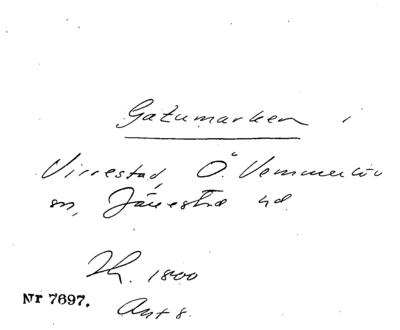 Gatumarken i
Virrestad, Ö. Vemmerlöv
sn, Järrestad hd.
Th. 1800
Nr 7697. Avt 8.